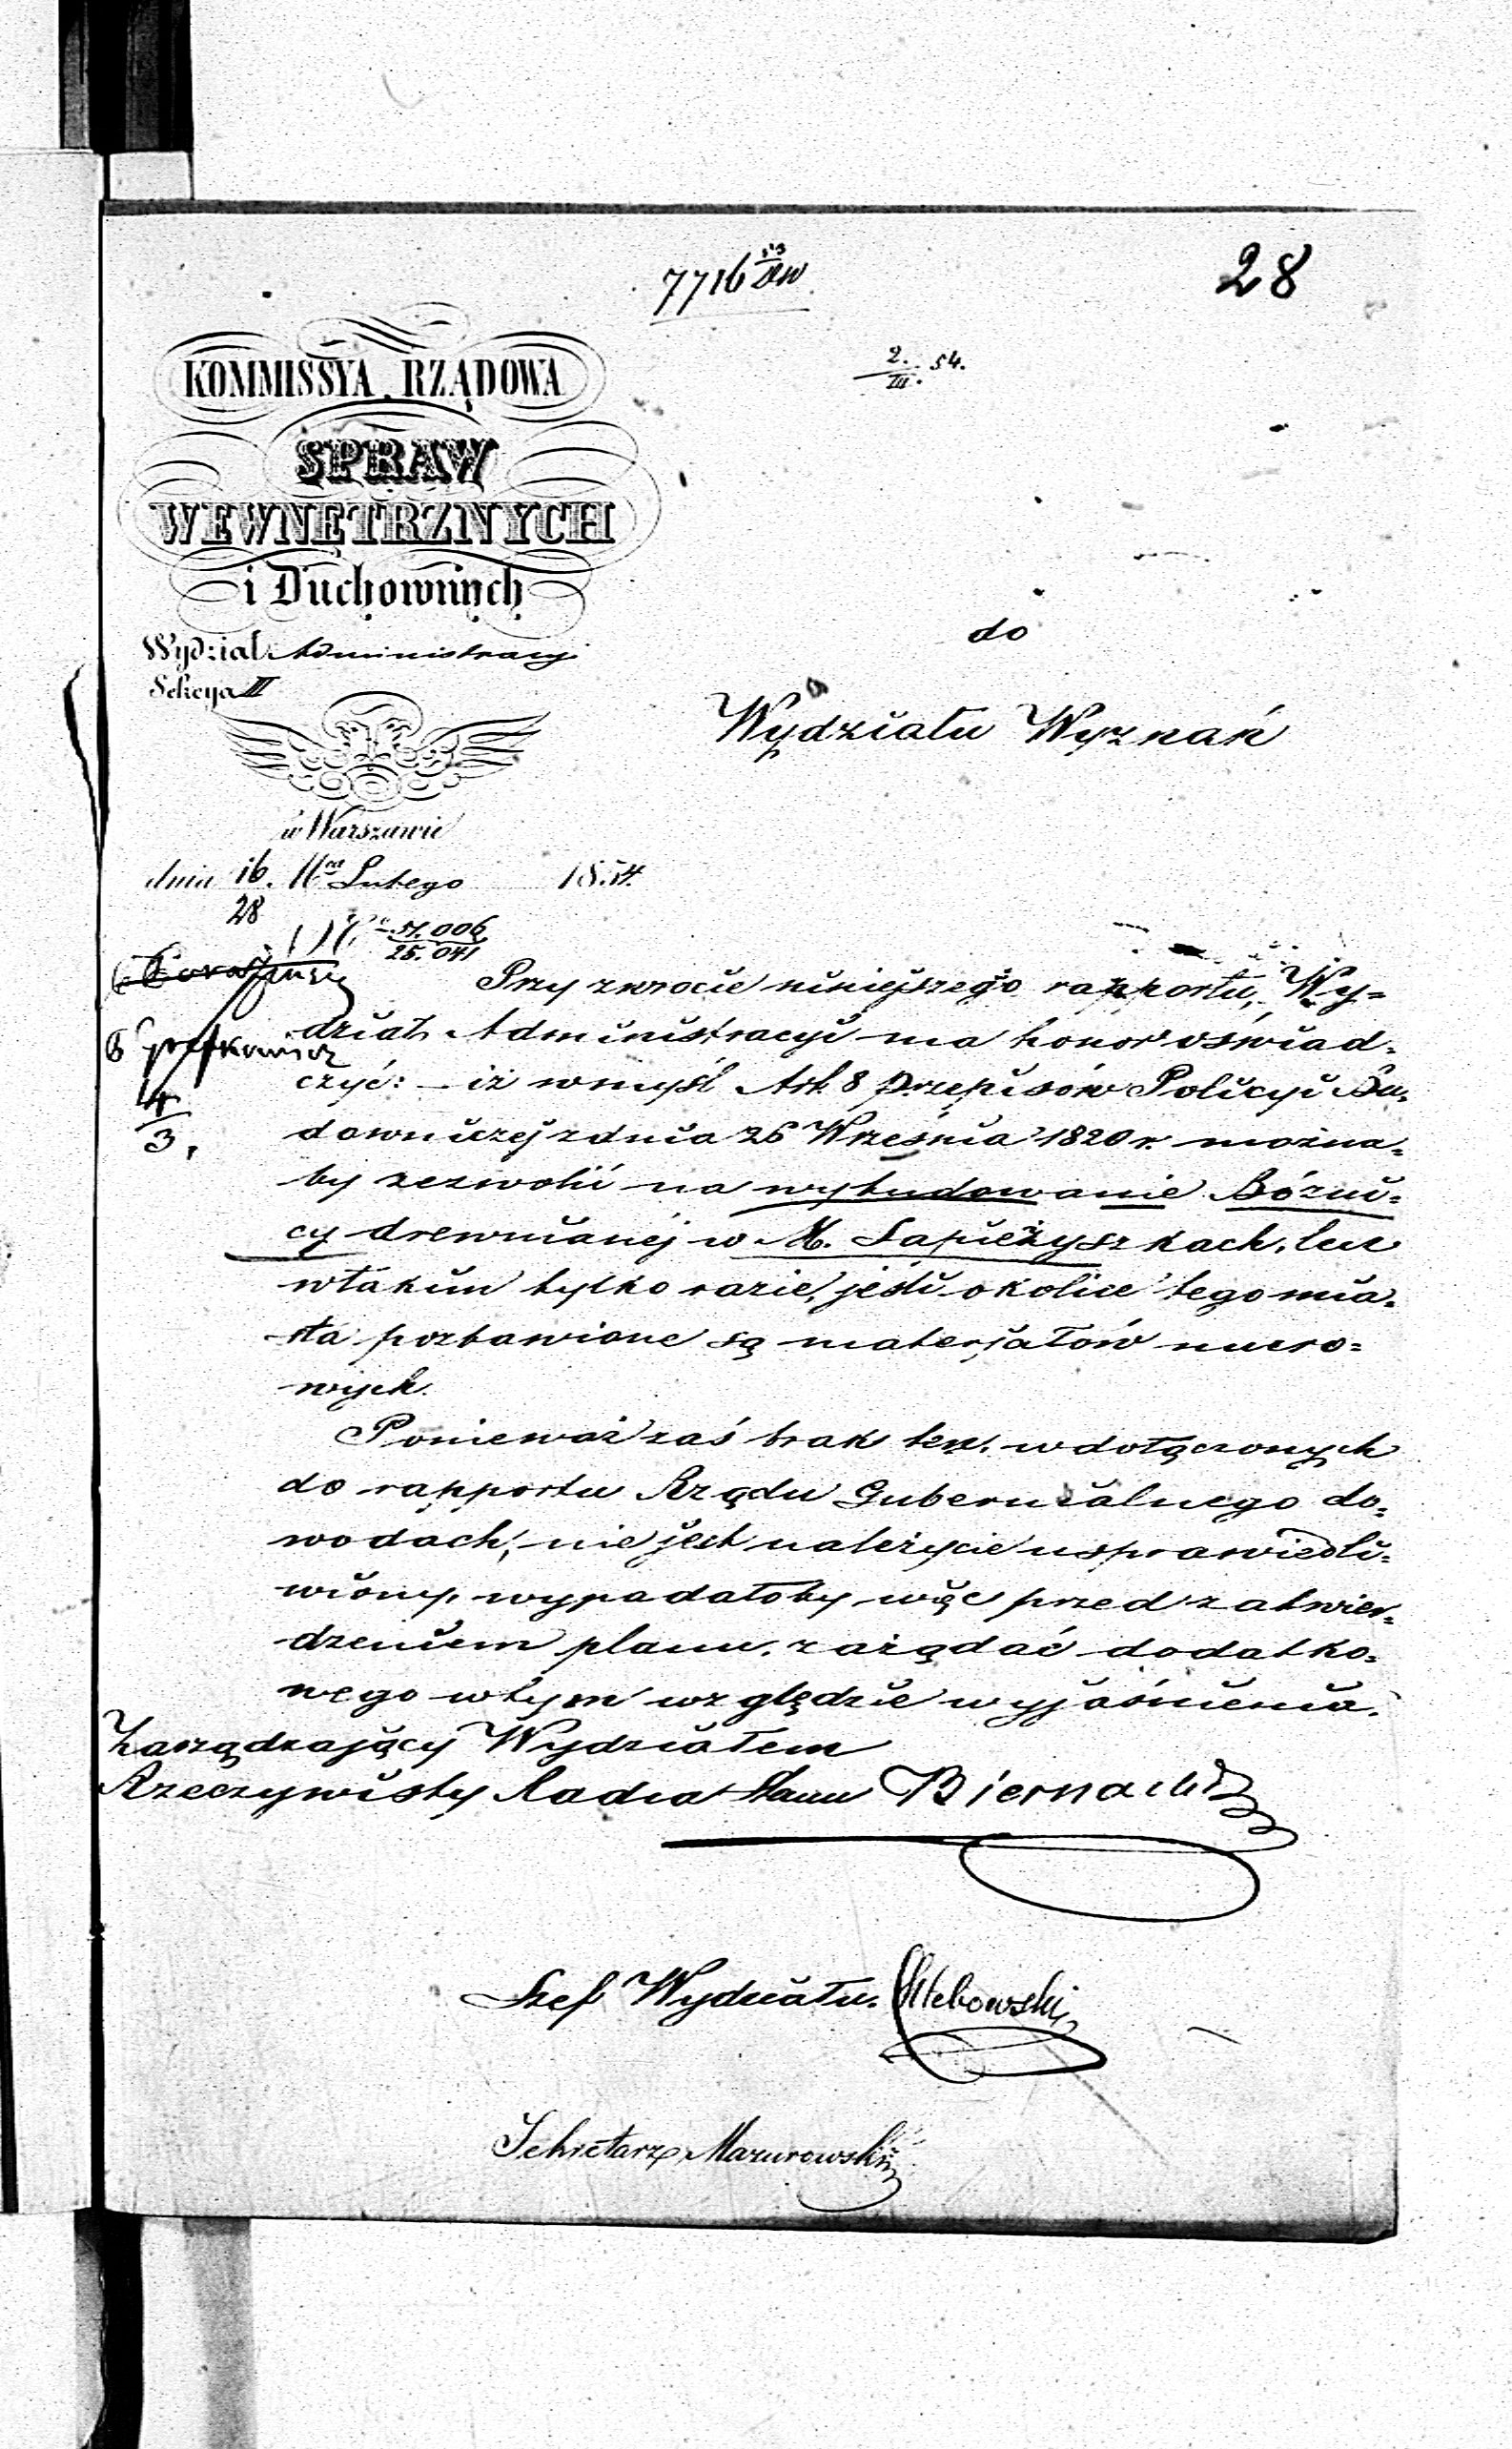 7716
28
2. 54.
III.
KOMMISSYA RZĄDOWA
SPRAW
WEWNĘTRZNYCH
i Duchownych
Wydział Administracyi
Sekcya II
do
Wydziału Wyznań
w Warszawie
dnia 16/28 Mca Lutego 1854.
N° 51.006
25.041
4
3.
Przy zwrocie niniejszego rapportu, Wy=
dział Administracyi ma honor oświad=
czyć: iż wmyśl Art. 8 Przepisów Policyi Bu=
downiczej zdnia 26 Września 1820 r. można=
by zezwolić na wybudowanie Bóźni=
cy drewnianej w M. Sapieżyszkach, lecz
wtakim tylko razie, jeśli okolice tego mia=
sta pozbawione są materjałów muro=
wych.
Ponieważ zaś brak ten, wdołączonych
do rapportu Rządu Gubernialnego do=
wodach, nie jest należycie usprawiedli=
wiony, wypadałoby więc przed zatwier=
dzeniem planu, zażądać dodatko=
wego wtym względzie wyjaśnienia.
Zarządzający Wydziałem
Rzeczywisty Radca Stanu Biernacki
Szef Wydziału
Sekretarz Mazurowski